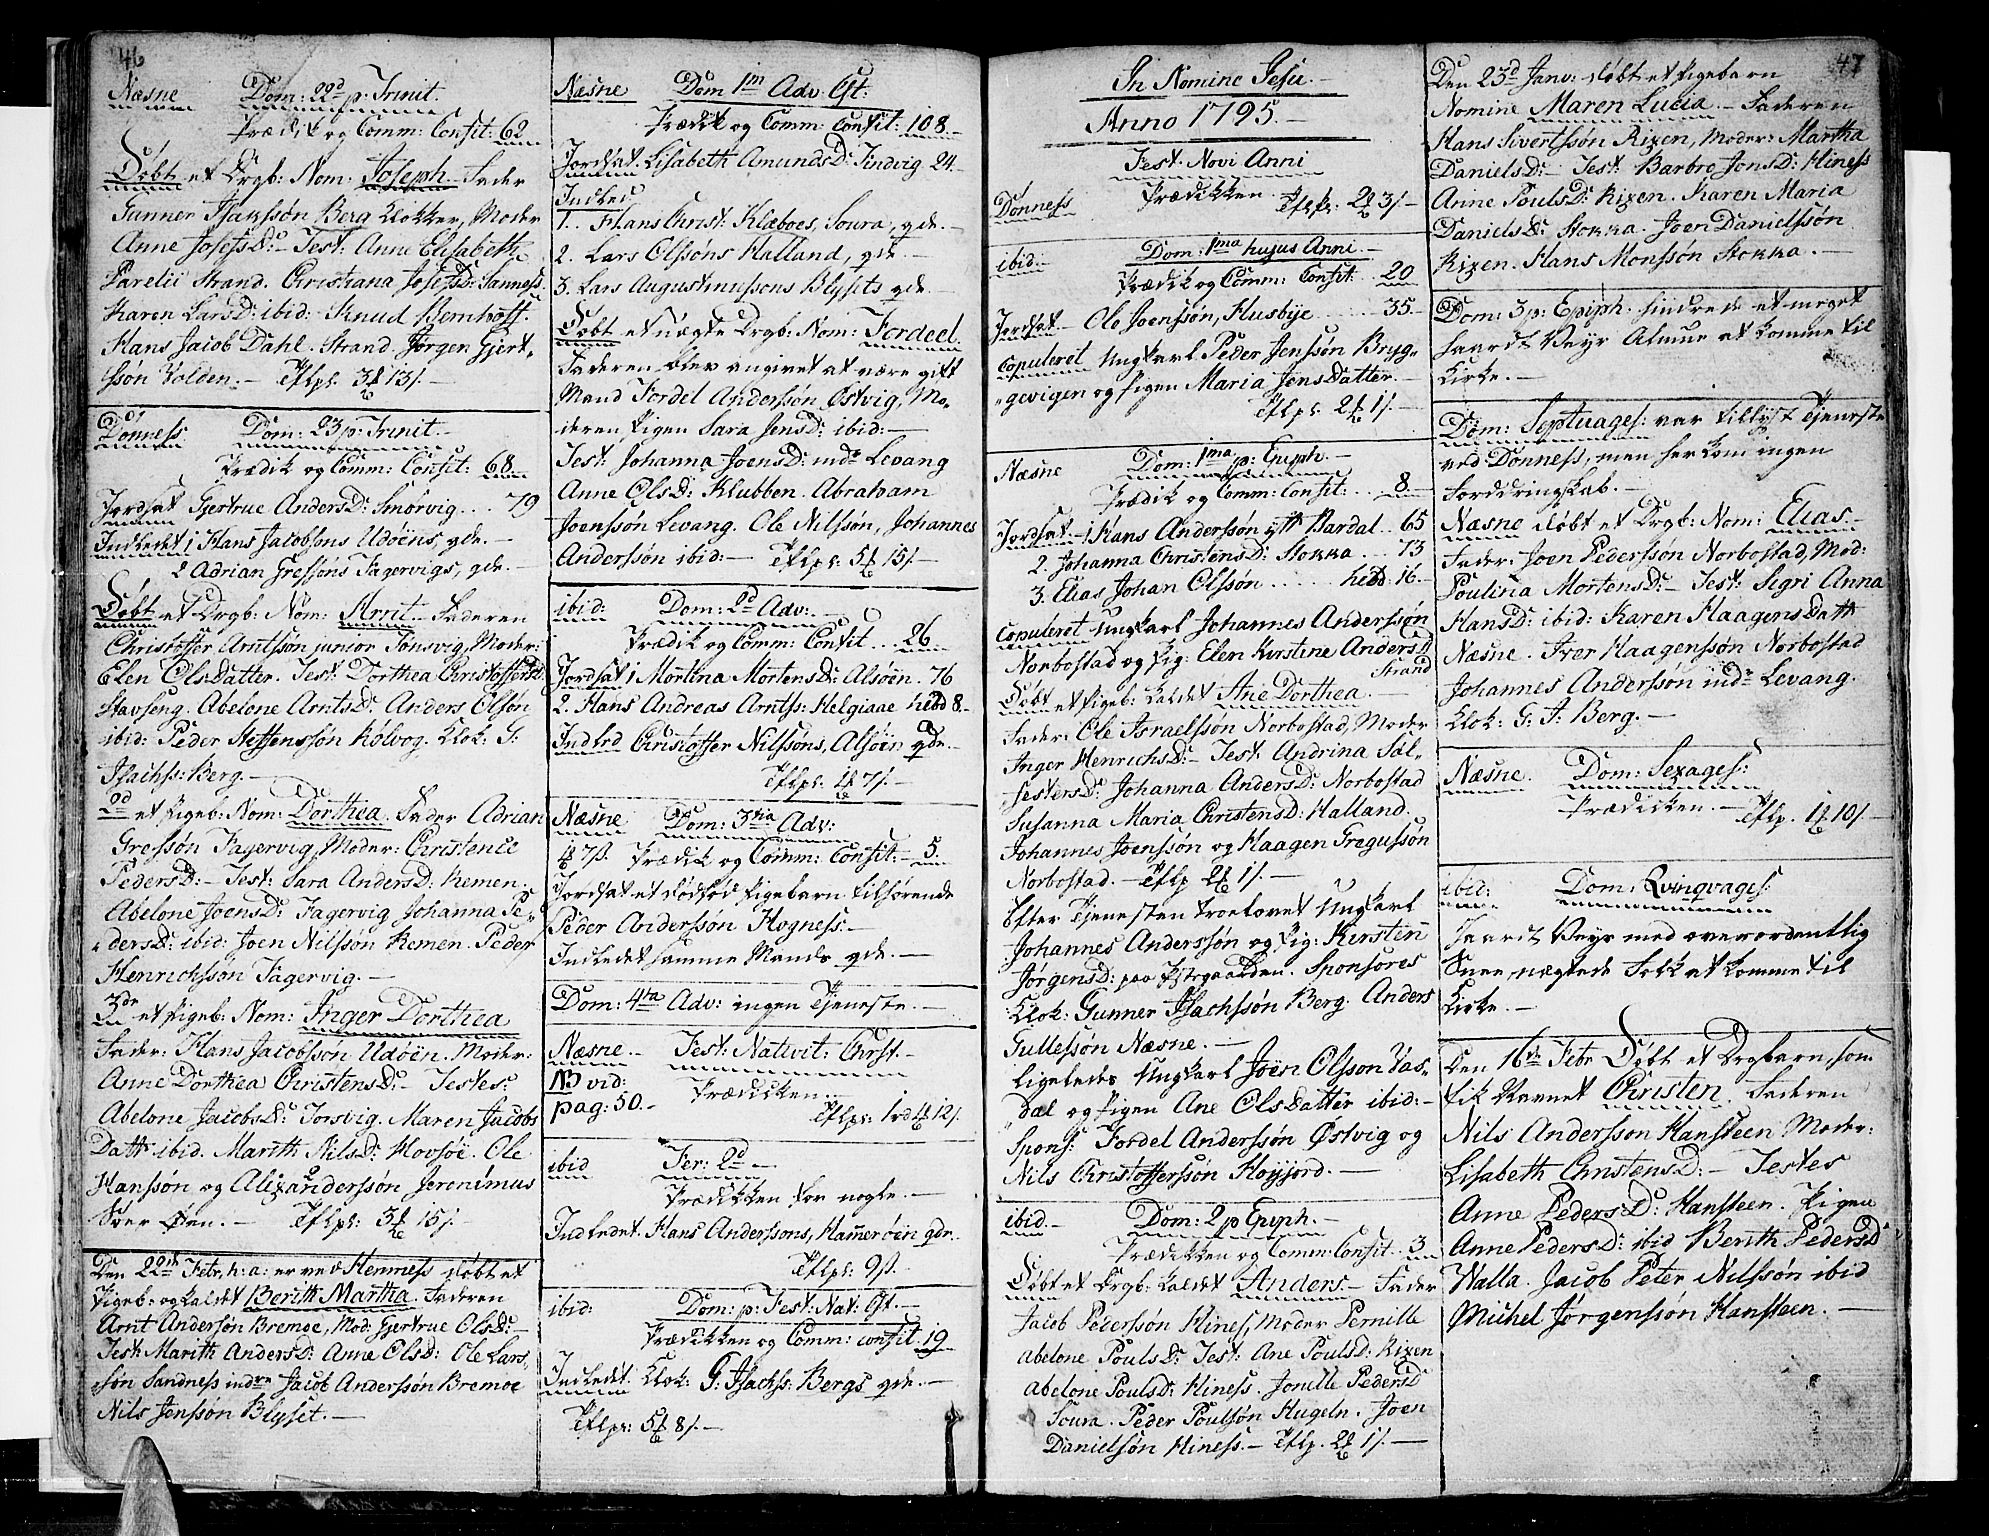 46
Næsne Dom: 22d p: Trinit.
Prædik og Comm: Confit: 62
Døbt et Drgb: Nom: Joseph. Fader
Gunner Isaksøn Berg Klokker, Moder
Anne JosefsD: Test: Anne Elisabeth
Parelii Strand. Christiana JosefsD: Sanness.
Karen LarsD: ibid: Knud Bernhoft
Hans Jacob Dahl. Strand. Jørgen Gjert-
ssøn Volden. Tflpl: 3 13/.
Dønness. Dom: 23 p: Trinit.
Prædik og Comm: Confit: 68
Jordsat Gjertrue AndersD: Smørvig... 79
Indledet 1 Hans Jacobsøns Udøens, qde.
2 Adrian Gressøns Fagervigs, qde.
Døbt et Drgb: Nom: Arnt. Faderen
Christoffer Arntssøn junior Tønsvig, Moder:
Elen OlsDatter. Test: Dorthea ChristoffersD:
Stavseng. Abelone ArntsD: Anders Olsøn
ibid: Peder Steffensøn Kølvog. Klok: G:
Isachss: Berg.
2d et Pigeb: Nom: Dorthea. Fader Adrian
Gressøn Fagervig, Moder: Christence
PedersD: Test: Sara AndersD: Remen.
Abelone JoensD: Fagervig Johanna Pe-
dersD: ibid: Joen Nilssøn Remen. Peder
Henrichssøn Fagervig.
3de et Pigeb: Nom: Inger Dorthea
Fader: Hans Jacobssøn Udøen. Moder:
Anne Dorthea ChristensD: Testes:
Abelone JacobsD: Torsvig. Maren Jacobs
Dattr ibid. Marith NilsD: Hovsøe. Ole
Hanssøn og Alexanderssøn Jeronimus
Svar Øen. Tflpl: 3 15/.
Den 22de Febr. h: a: er ved Henness døbt et
Pigeb: og kaldet Berith Martha. Faderen
Arnt Andersøn Bremoe, Mod: Gjertrue OlsD:
Test: Marith AndersD: Anne OlsD: Ole Lars-
søn Sandness indre Jacob Anderssøn Bremoe
Nils Jenssøn Blyset.
Næsne Dom 1m Adv: Cst:
Prædik og Comm: Confit: 108
Jordsat. Lisabeth AmundsD: Findvig 24.
Indled
1. Hans Christ: Klæboes, Soura, qde.
2. Lars Olssøns Halland, qde.
3. Lars Augustinussøns Blysets qde.
Døbt et uægte Drgb: Nom: Fordeel.
Faderen blev angivet at være gift
Mand Fordel Anderssøn Østvig, Mo-
deren Pigen Sara JensD: ibid:
Test: Johanna JoensD: indr Levang
Anne OlsD: Klubben. Abraham
Joenssøn Levang. Ole Nilssøn, Johannes
Anderssøn ibid: Tflpl: 5 15/.
ibid: Dom: 2d Adv:
Prædik og Comm: Confit... 26
Jordsat 1 Mortina MortensD: Alsøen. 76
2. Hans Andreas Arntss: Helgiaae hebd 8.
Indled Christoffer Nilssøns, Alsøen qde.
Tflpl: 1 7/.
Næsne Dom: 3tia Adv:
Prædik og Comm: Confit: 5.
Jordsat et dødfød Pigebarn tilhørende
Peder Anderssøn Hogness.
Indledet samme Mands qde.
Dom: 4ta Adv: ingen Tjeneste.
Næsne Fest: Nativit: Chrst.
NB vid:
pag: 50. Prædicken
Tflpl: 1rd 12/.
ibid Fer: 2d
Prædikken for nogle.
Indledet Hans Anderssøns, Hammerøen qde.
Tflpl: 9ß.
ibid: Dom: p: Fest: Nat: Cst.
Prædikken og Comm: Confit 19
Indledet. Klok: G: Isachss: Bergs qde.
Tflpl: 5 8/.
In Nomine Jesu.
Anno 1795.
Fest: Novi Anni
Dønness Prædikken. Tflpl: 2 3/.
ibid. Dom: 1ma hujus Anni.
Prædik og Comm: Confit: 20
Jordsat Ole Joenssøn, Husbÿe 35.
Copuleret Ungkarl Peder Jenssøn Bryg-
gevigen og Pigen Maria JensDatter.
Tflpl: 2 1/.
Næsne Dom: 1ma p: Epiph.
Prædik og Comm: Confit: 8
Jordsat 1 Hans Anderssøn yttr Bardal.. 65
2. Johanna ChristensD: Stokka... 73
3. Elias Johan Olssøn hebd. 16.
Copuleret Ungkarl Johannes Anderssøn
Norbostad og Pig: Elen Kirstine AndersD
Strand
Døbt et Pigeb: kaldet Ane Dorthea.
Fader: Ole Israelssøn Norbostad, Moder
Inger HenrichsD: Test: Andrina Sal-
festersD: Johanna AndersD: Norbostad
Susanna Maria ChristensD: Halland.
Johannes Joenssøn og Haagen Gregussøn
Norbostad. Tflp 2 1/.
Efter Tjenesten troelovet Ungkarl
Johannes Anderssøn og Pig: Kirsten
JørgensD: paa Præstegaarden. Sponsores
Klok: Gunner Isachssøn Berg. Anders
Gullessøn Næsne.
Ligeledes Ungkarl Joen Olsson Vas-
dal og Pigen Ane OlsDatter ibid:
Spons: Fordel Anderssøn Østvig og
Nils Christofferssøn Høyjord.
ibid. Dom: 2 p Epiph.
Prædikken og Comm: Confit.. 3
Døbt et Drgb: kaldet Anders. Fader
Jacob Pederssøn Hines, Moder Pernille
Abelone PoulsD: Test: Ane PoulsD: Rixen
Abelone PoulsD: Hiness. Jorille PedersD
Soura. Peder Poulsøn Hugeln. Joen
Danielsøn Hiness. Tflp. 2 1/.
47
Den 23d Janv: døbt et Pigebarn
Nomine Maren Lucia. Faderen
Hans Sivertssøn Rixen, Moder: Martha
DanielsD: Test: Barbro JonsD: Hiness
Anne PoulsD: Rixen. Karen Maria
DanielsD: Stokka. Joen Danielssøn
Rixen. Hans Monssøn Stokka.
Dom: 3 p: Epiph. hindrede et meget
haardt Veyr Almue at komme til
Kirke.
Dom: Septuages: var tillyst Tjeneste
ved Dønness, men her kom ingen
Forddringskab.
Næsne døbt et Drgb: Nom: Elias.
Fader: Joen Pederssøn Norbostad, Mod:
Poulina MortensD: Test: Sigri Anna
HansD: ibid: Karen HaagensDattr
Næsne. Iver Haagenssøn Norbostad
Johannes Anderssøn indr Levang.
Klok: G: I: Berg.
Næsne. Dom: Sexages:
Prædicken. Tflp. 1 10/.
ibid: Dom: Qvinqvages:
Haardt Veyr med overordentlig
Snee nægtede Folk at komme til
Kirke.
Den 16de Febr Døbt et Drgbarn, som
fik Navnet Christen. Faderen
Nils Andersson Hansteen Moder:
Lisabeth ChristensD: Testes
Anne PedersD: Hansteen. Pigen
Anne PedersD: ibid Berith PedersD
Walla. Jacob Peter Nilssøn ibid
Michel Jørgenssøn Hansteen.